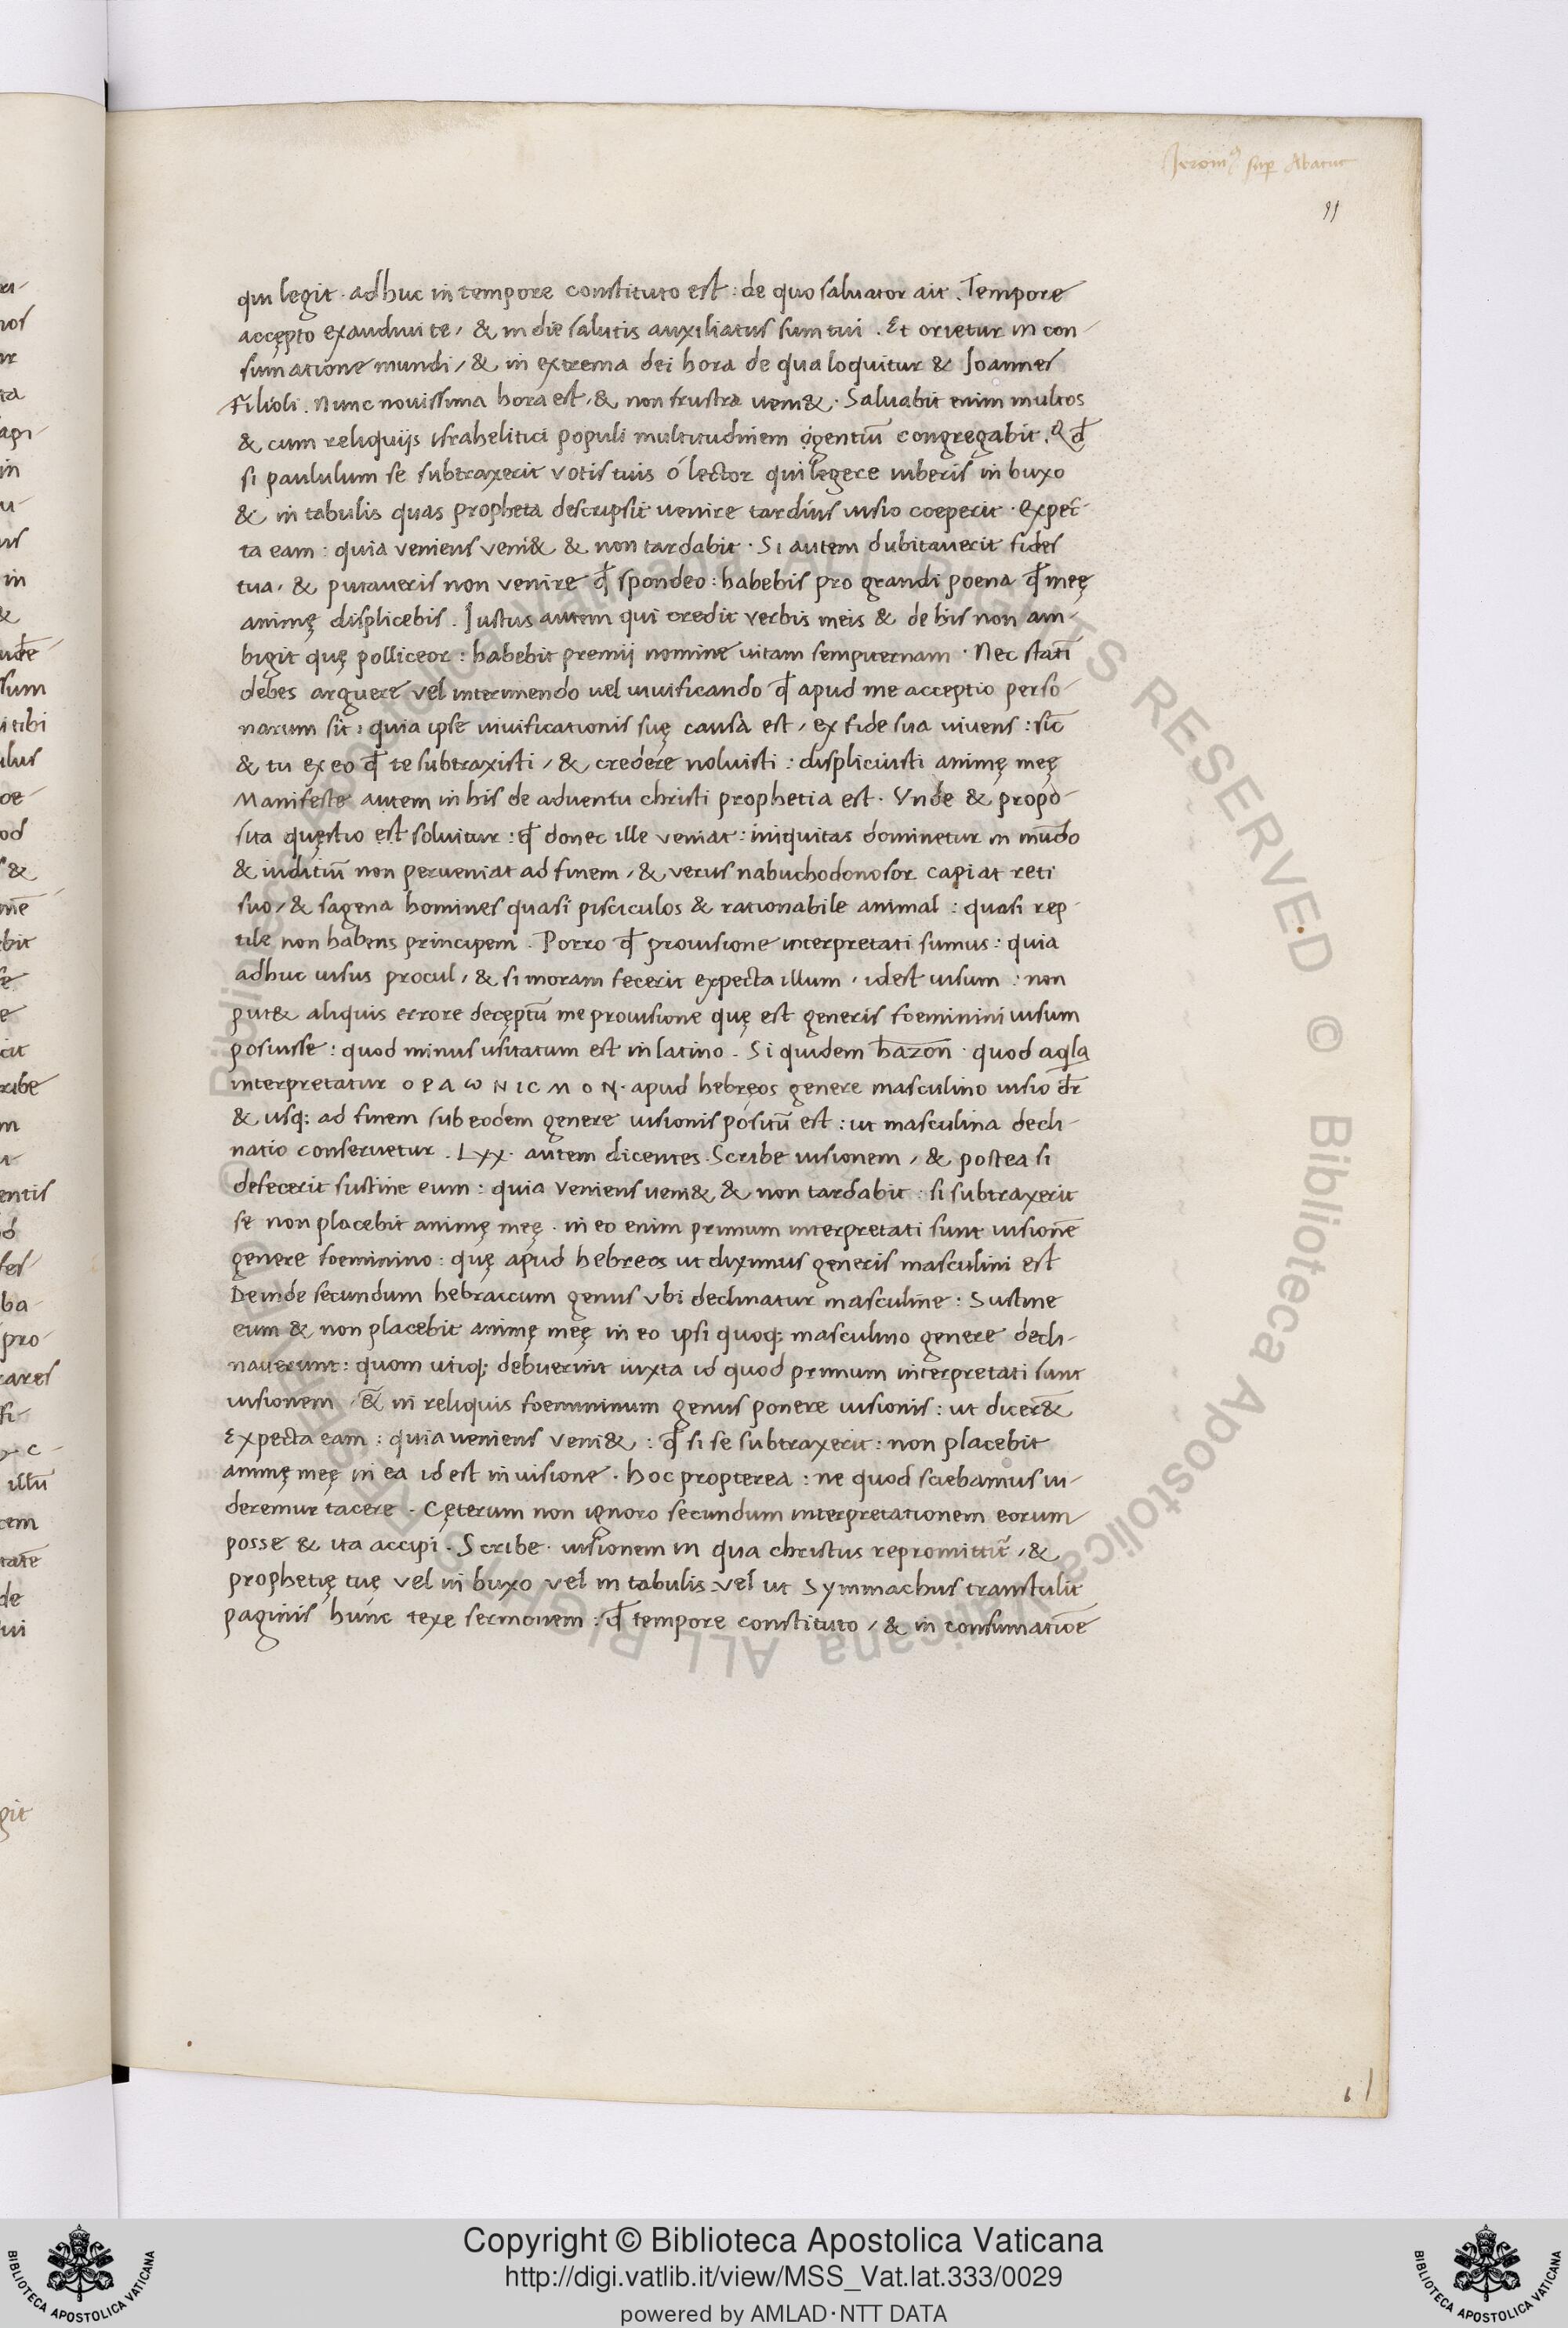 Jeronim9 sup Abacuc
11
qui legit · adhuc in tempore constituto est : de quo saluator ait . Tempore
accępto exaudiui te , & in die salutis auxiliatus sum tui . Et orietur in con-
sumatione mundi , & in extrema dei hora de qua loquitur & Joannes
Filioli . Nunc nouissima hora est , & non frustra ueni& . Saluabit enim multos
& cum reliquijs israhelitici populi multitudinem gentiū congregabit . Qđ
si paululum se subtraxerit votis tuis ó lector qui legere iuberis in buxo
& in tabulis quas propheta descripsit uenire tardius uisio coeperit · expec-
ta eam : quia veniens veni& & non tardabit · Si autem dubitauerit fides
tua , & putaueris non venire qđ spondeo : habebis pro grandi poena qđ meę
animę displicebis . Justus autem qui credit verbis meis & de his non am-
bigit quę polliceor : habebit premij nomine uitam sempiternam · Nec statī
debes arguere vel interimendo uel uiuificando qđ apud me acceptio perso-
narum sit : quia ipse uiuificationis suę causa est , ex fide sua uiuens : sic
& tu ex eo qđ te subtraxisti , & credere noluisti : displicuisti animę meę
Manifeste autem in his de aduentu christi prophetia est . Vnde & propo-
sita quęstio est soluitur : qđ donec ille veniat : iniquitas dominetur in mūdo
& iuditiū non perueniat ad finem , & verus nabuchodonosor capiat reti
suo , & sagena homines quasi pisciculos & rationabile animal : quasi rep-
tile non habens principem . Porro qđ prouisione interpretati sumus : quia
adhuc uisus procul , & si moram fecerit expecta illum , idest uisum : non
put& aliquis errore decęptū me prouisione quę est generis foeminini uisum
posuisse : quod minus usitatum est in latino . Si quidem hazon · quod aqla
interpretatur ΟΡΑΩΝΙCΜΟΝ · apud hebręos genere masculino uisio dr̄
& usq; ad finem sub eodem genere uisionis positū est : ut masculina decli-
natio conseruetur . Lxx . autem dicentes . Scribe uisionem , & postea si
defecerit sustine eum : quia veniens ueni& & non tardabit : si subtraxerit
se non placebit animę meę . in eo enim primum interpretati sunt uisionē
genere foeminino : quę apud hebreos ut diximus generis masculini est
Deinde secundum hebraicum genus vbi declinatur masculine : Sustine
eum & non placebit animę meę in eo ipsi quoq; masculino genere decli-
nauerunt : quom utiq; debuerint iuxta id quod primum interpretati sunt
uisionem , & in reliquis foemininum genus ponere uisionis : ut dicer&
Expecta eam : quia ueniens veni& : qđ si se subtraxerit : non placebit
animę meę in ea idest in uisione . hoc propterea : ne quod sciebamus ui-
deremur tacere . Cęterum non ignoro secundum interpretationem eorum
posse & ita accipi . Scribe · uisionem in qua christus repromittit , &
prophetię tuę vel in buxo vel in tabulis vel ut Symmachus transtulit
paginis hunc texe sermonem : qđ tempore constituto , & in consumatiōe
6
Copyright © Biblioteca Apostolica Vaticana
http://digi.vatlib.it/view/MSS_Vat.lat.333/0029
powered by AMLAD·NTT DATA